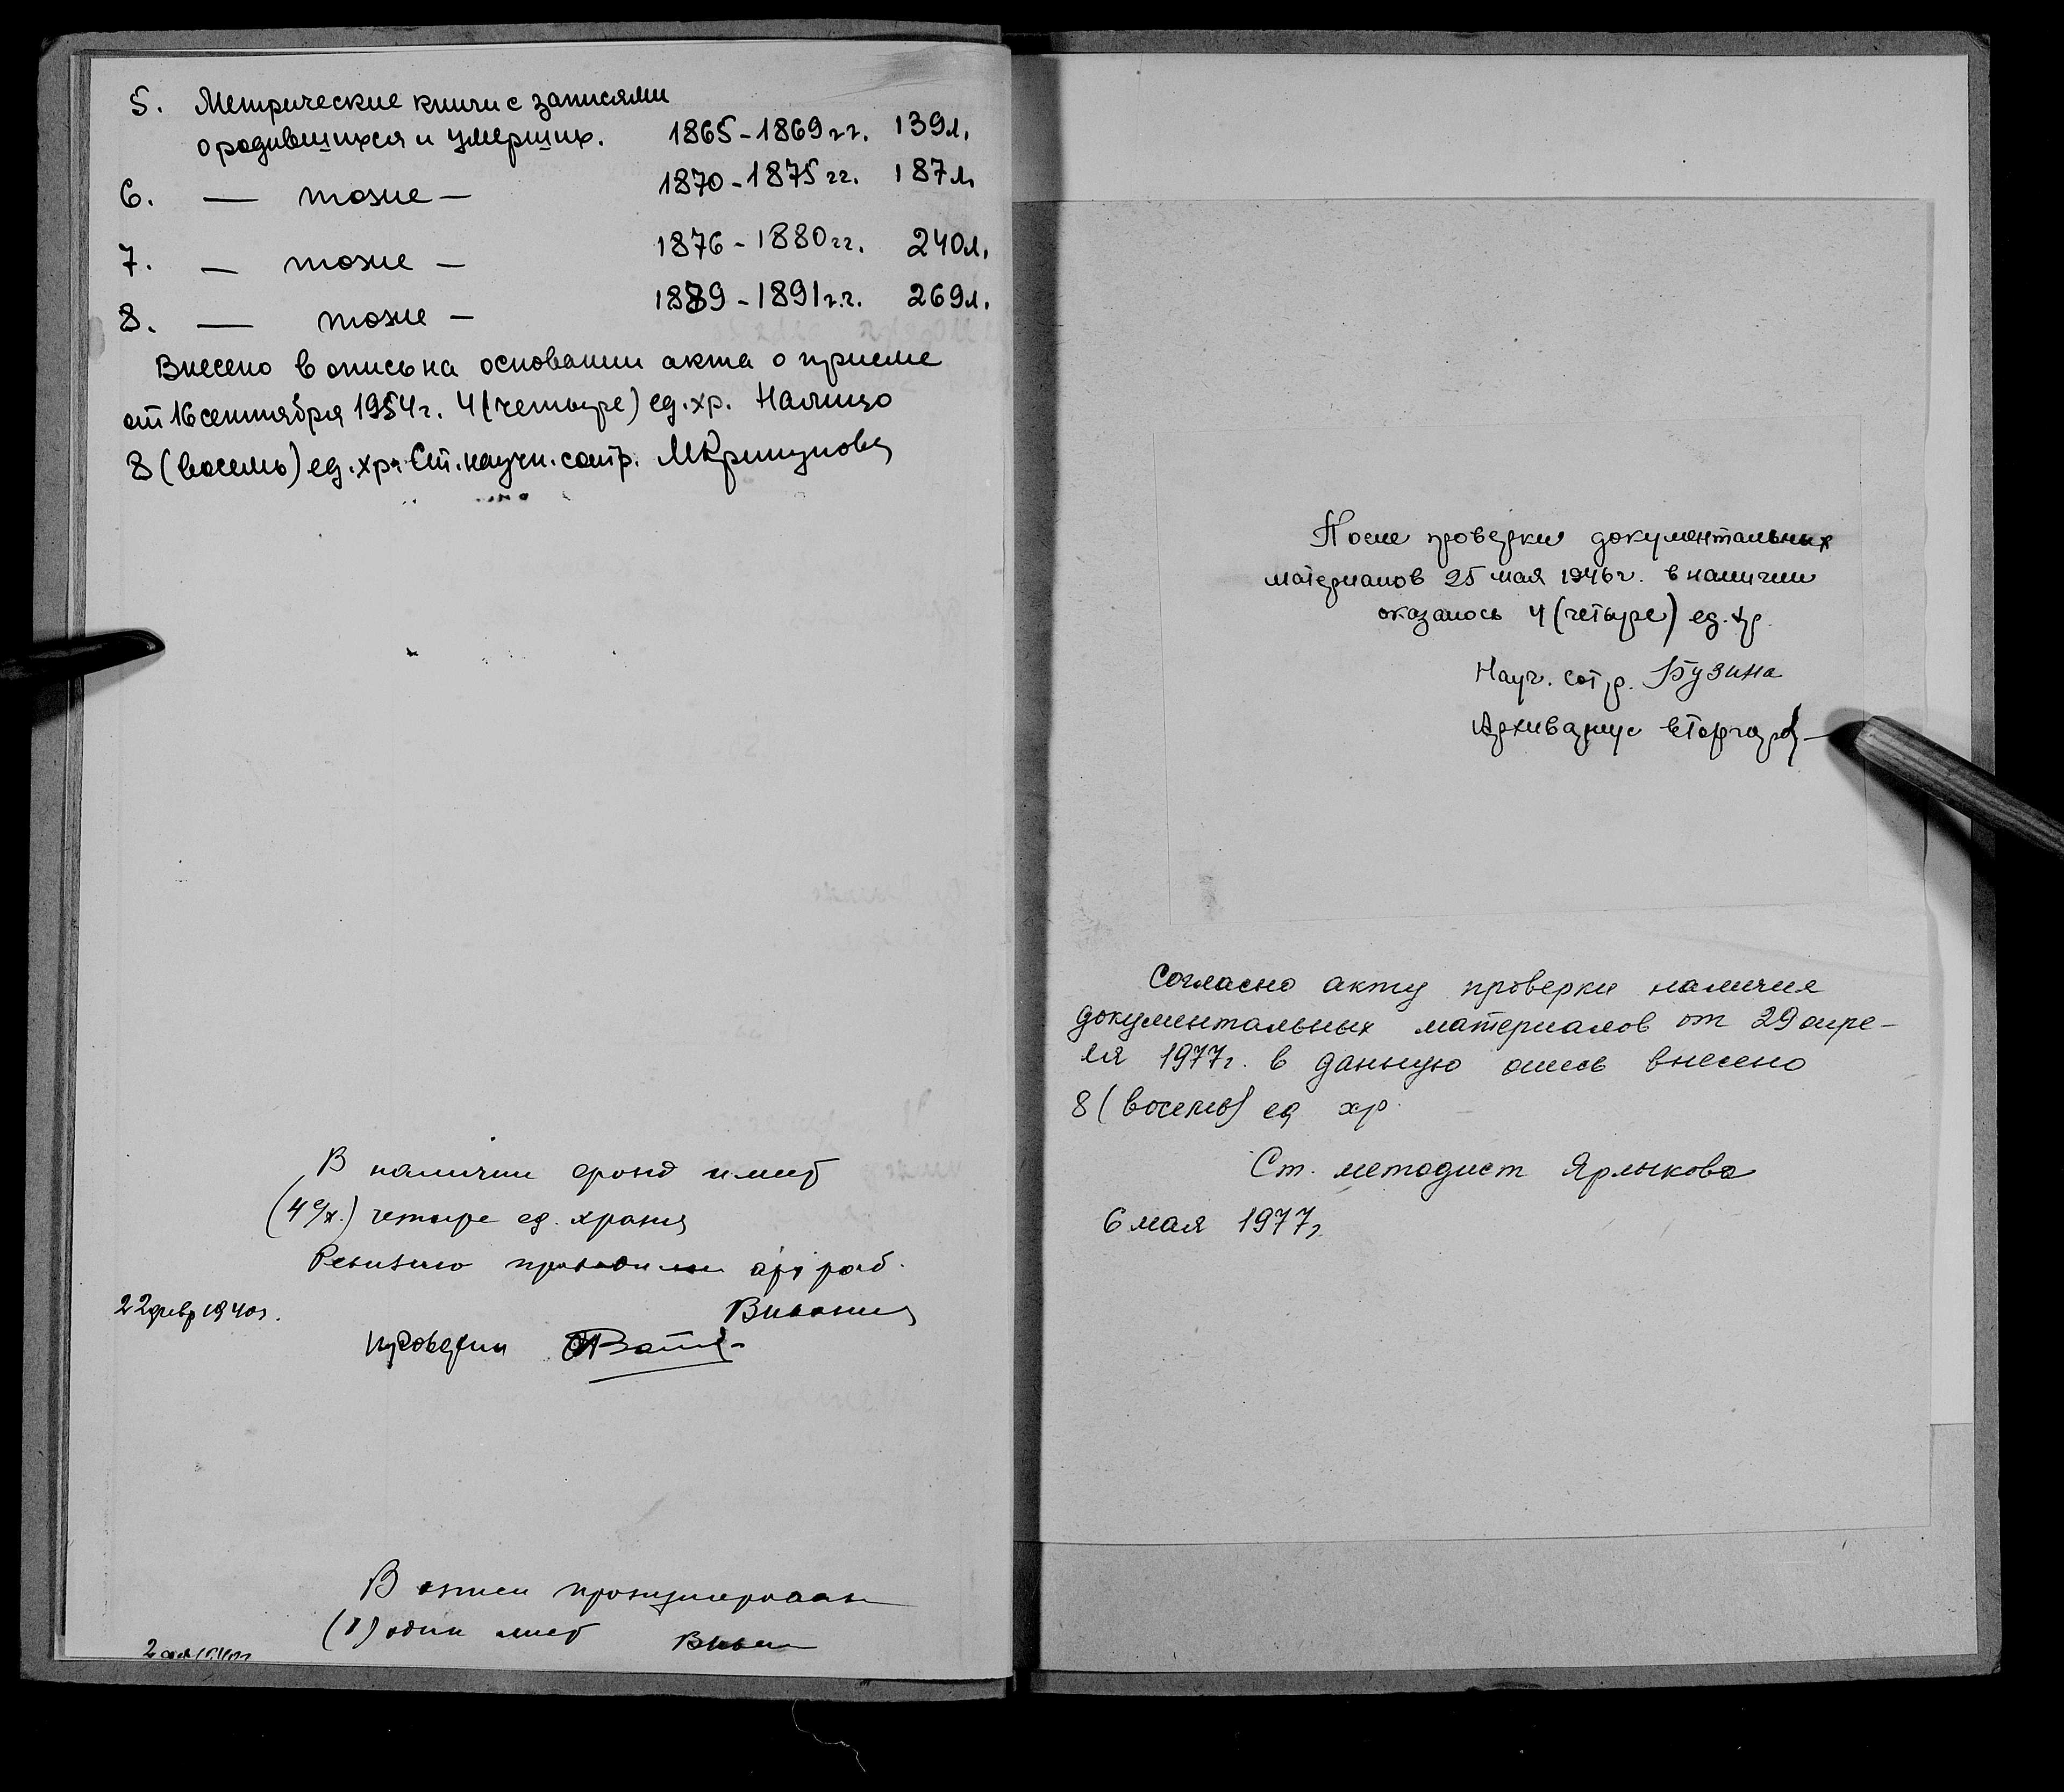 5. Метрические книги с записями
о родившихся и умерших. 1865-1869 гг. 139 л.
6. — тоже — 1870-1875 гг. 187 л.
7. — тоже — 1876-1880 гг. 240 л.
8. — тоже — 1889-1891 г.г. 269 л.
Внесено в опись на основании акта о приеме
от 16 сентября 1954 г. 4 (четыре) ед. хр. Налицо
8 (восемь) ед. хр. Ст. научн. сотр.
В наличии фонд имеет
четыре ед. храния
Ревизию проводили арх раб.
22 февр 1940 г.
Проверил
В описи пронумерован
(1) один лист
После проверки документальных
материалов 25 мая 1946 г. в наличии
оказалось 4 (четыре) ед. хр.
Науч. сотр. Бузина
Архивариус
Согласно акту проверки наличия
документальных материалов от 29 апре-
ля 1977 г. в данную опись внесено
8 (восемь) ед хр.
Ст. методист Ярлыкова
6 мая 1977 г.